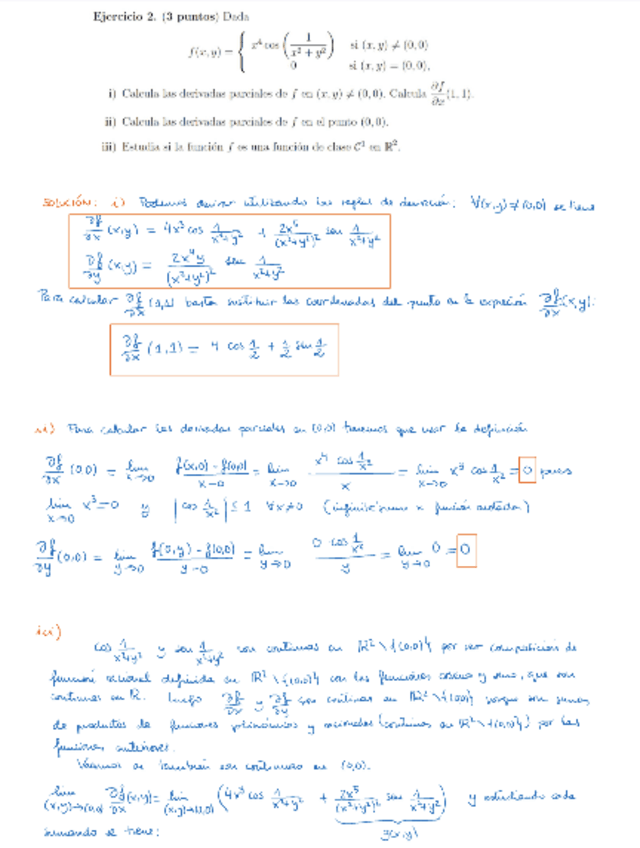 Ejercicio 2. (3 puntos) Dada
f(x, y) = { x⁴ cos (1/(x² + y²)) si (x, y) ≠ (0, 0)
0 si (x, y) = (0, 0).
i) Calcula las derivadas parciales de f en (x, y) ≠ (0, 0). Calcula ∂f/∂x (1, 1).
ii) Calcula las derivadas parciales de f en el punto (0, 0).
iii) Estudia si la función f es una función de clase C¹ en ℝ².
SOLUCIÓN: i) Podemos derivar utilizando las reglas de derivación: ∀(x,y)≠(0,0) se tiene
∂f/∂x (x,y) = 4x³ cos 1/(x²+y²) + 2x⁵/(x²+y²)² sen 1/(x²+y²)
∂f/∂y (x,y) = 2x⁴y/(x²+y²)² sen 1/(x²+y²)
Para calcular ∂f/∂x (1,1) basta sustituir las coordenadas del punto en la expresión ∂f/∂x (x,y):
∂f/∂x (1,1) = 4 cos 1/2 + 1/2 sen 1/2
ii) Para calcular las derivadas parciales en (0,0) tenemos que usar la definición
∂f/∂x (0,0) = lim x→0 f(x,0) - f(0,0)/x-0 = lim x→0 x⁴ cos 1/x²/x = lim x→0 x³ cos 1/x² = 0 pues
lim x→0 x³ = 0 y |cos 1/x²| ≤ 1 ∀x≠0 (infinitésimo x función acotada)
∂f/∂y (0,0) = lim y→0 f(0,y) - f(0,0)/y-0 = lim y→0 0 cos /y = lim y→0 0 = 0
iii)
cos 1/(x²+y²) y sen 1/(x²+y²) son continuas en ℝ² \ {(0,0)} por ser composición de
función racional definida en ℝ² \ {(0,0)} con las funciones coseno y seno, que son
continuas en ℝ. Luego ∂f/∂x y ∂f/∂y son continuas en ℝ² \ {(0,0)} porque son sumas
de productos de funciones polinómicas y racionales (continuas en ℝ² \ {(0,0)}) por las
funciones anteriores.
Veamos si también son continuas en (0,0).
lim (x,y)→(0,0) ∂f/∂x (x,y) = lim (x,y)→(0,0) (4x³ cos 1/(x²+y²) + 2x⁵/(x²+y²)² sen 1/(x²+y²)) y estudiando cada
sumando se tiene: g(x,y)